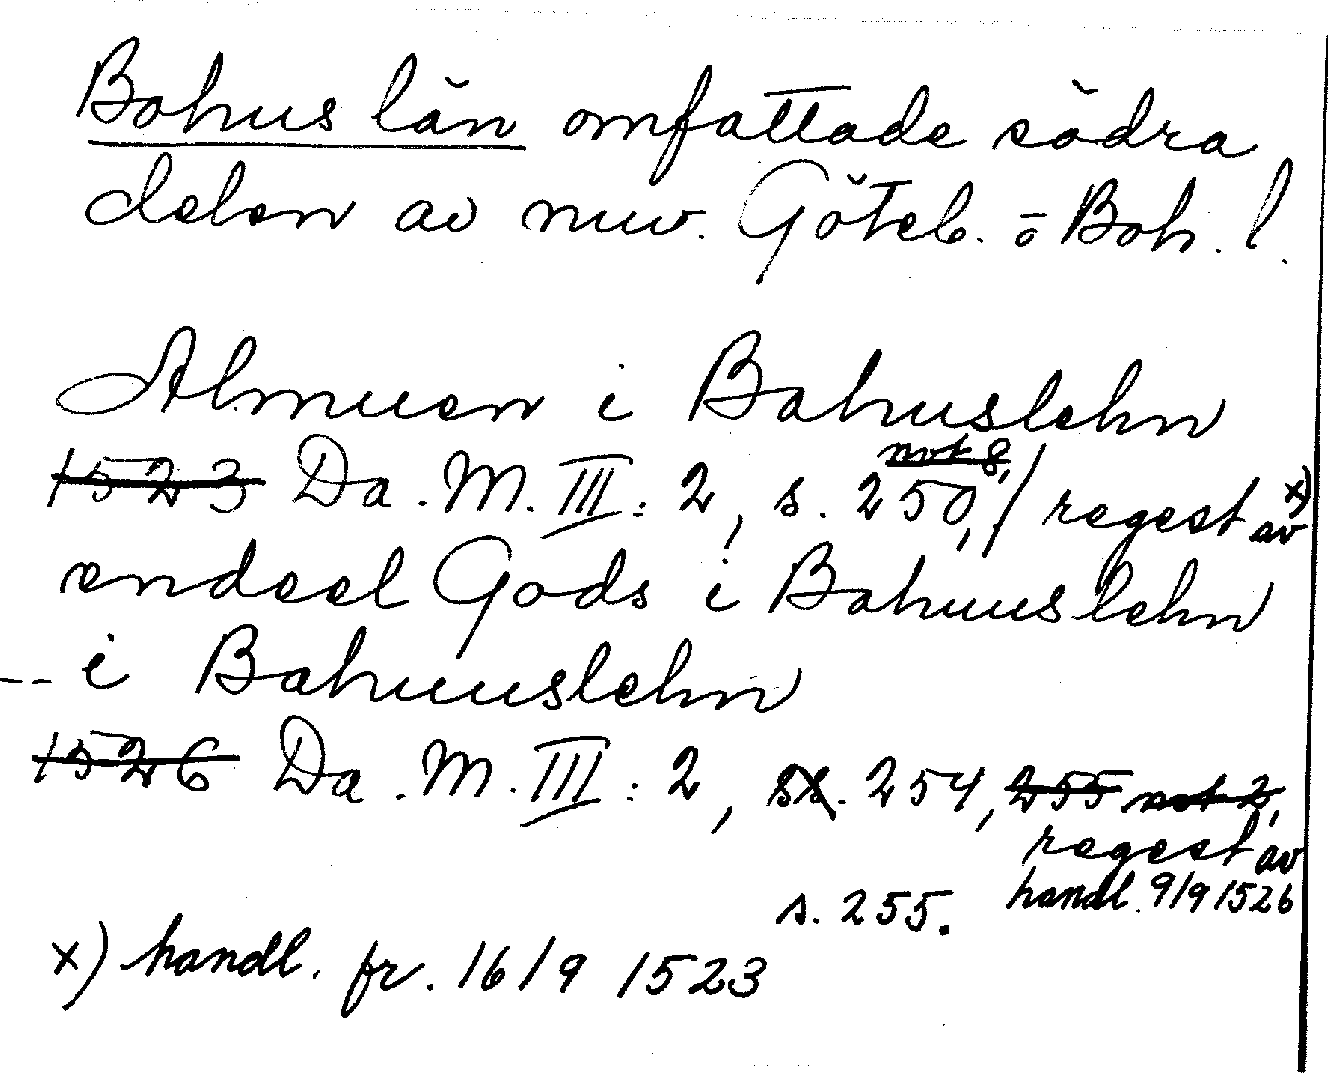 Bohus län omfattade södra
delen av nuv. Göteb. o Boh. l.
Almuen i Bahuslehn
1523 Da. M. III: 2, s. 250, not 8, / regest av x)
endeel Gods i Bahuuslehn
-- i Bahuuslehn
1526 Da. M. III: 2, ss. 254, 255 not 2,
regest av
handl. 9/9 1526
s. 255.
x) handl. fr. 16/9 1523